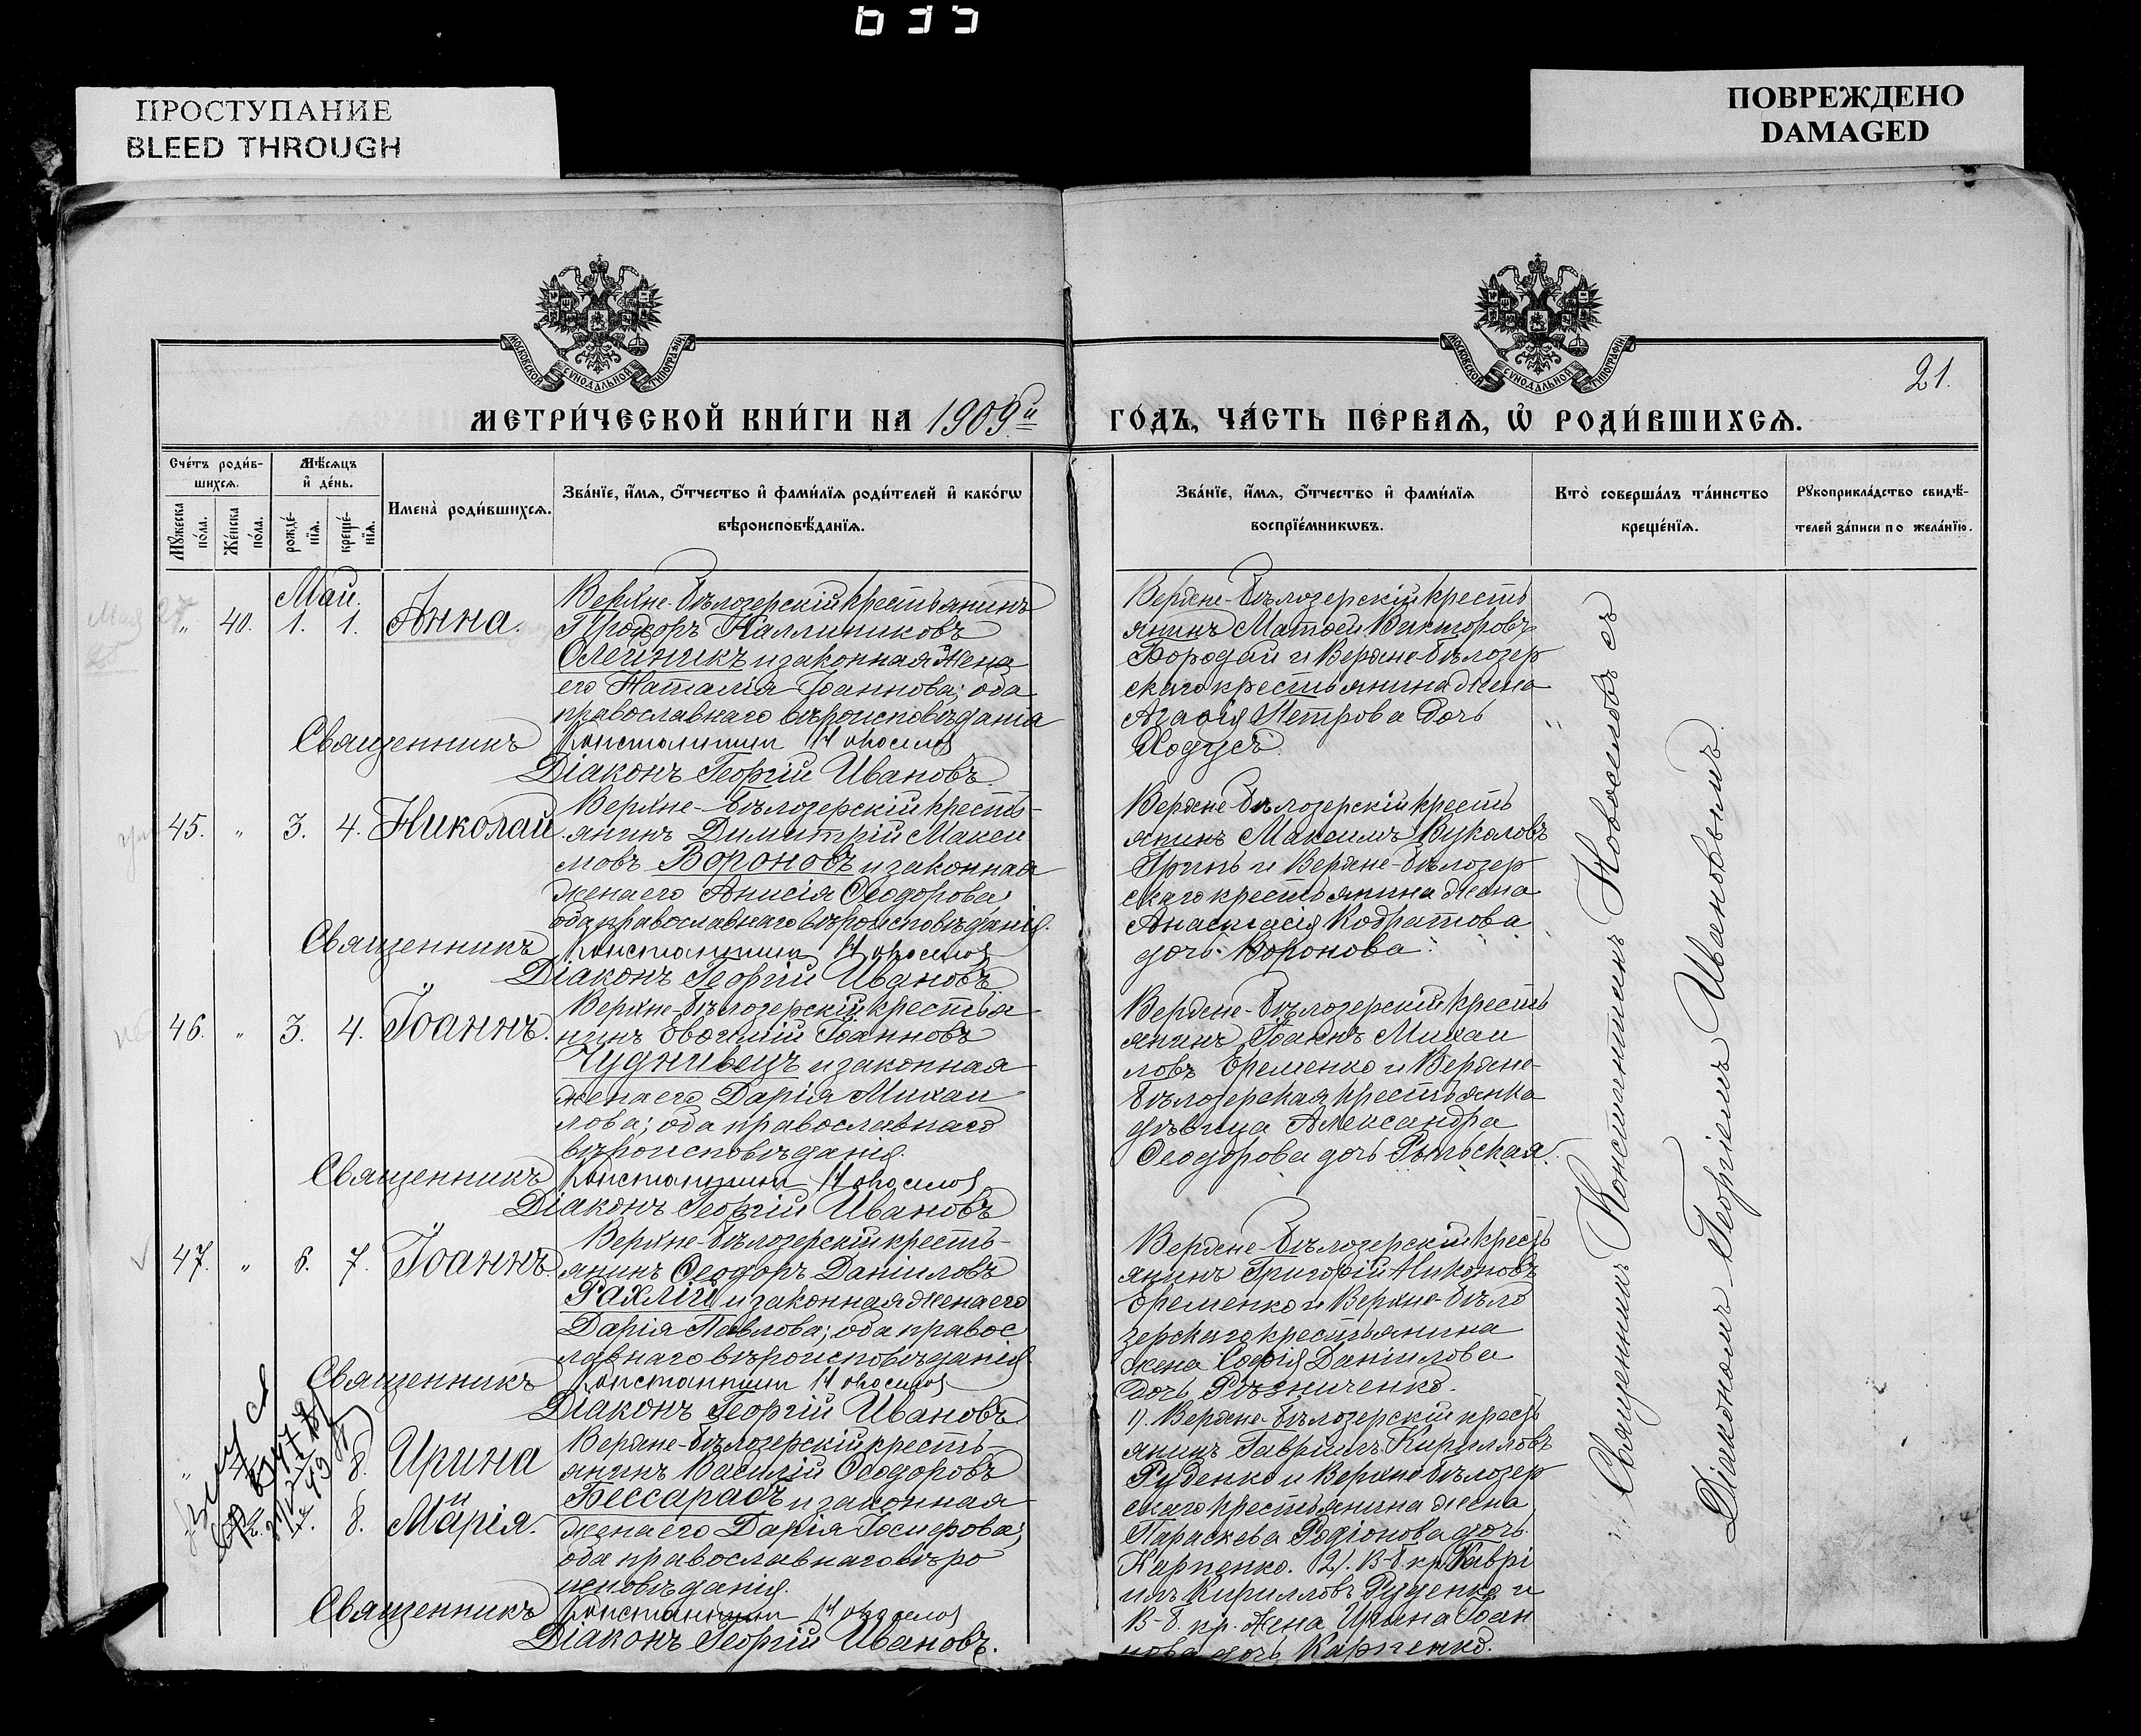 635
ПРОСТУПАНИЕ
BLEED THROUGH
ПОВРЕЖДЕНО
DAMAGED
МОСКОВСКОЙ СѴНОДАЛЬНОЙ ТИПОГРАФІИ
МОСКОВСКОЙ СѴНОДАЛЬНОЙ ТИПОГРАФІИ
21.
МЕТРИ́ЧЕСКОЙ КНИ́ГИ НА 1909й ГО́ДЪ, ЧА́СТЬ ПЕ́РВАѦ, Ѽ РОДИ́ВШИХСѦ.
Сче́тъ роди́в-
шихсѧ.
Мꙋ́жеска по́ла.
Же́нска по́ла.
Мѣ́сѧцъ
и҆ де́нь.
рожде́-
нїѧ.
креще́-
нїѧ.
Имена̀ роди́вшихсѧ.
Зва́нїе, и҆́мѧ, ѻ҆́тчество и҆ фами́лїѧ роди́телей и҆ како́гѡ
вѣроисповѣ́данїѧ.
Зва́нїе, и҆́мѧ, ѻ҆́тчество и҆ фами́лїѧ
воспрїе́мникѡвъ.
Кто̀ соверша́лъ та́инство
креще́нїѧ.
Рꙋкоприкла́дство свидѣ́-
телей за́писи по жела́нїю.
Май.
" 40. 1. 1. Анна.
Верхне-бѣлозерскій крестьянинъ
Продоръ Каллиниковъ
Олейникъ и законная жена
его Наталія Іоаннова; оба
православнаго вѣроисповѣданія
Священникъ Константин Новоселов
Діаконъ Георгій Ивановъ.
Верхне-бѣлозерскій кресть
янинъ Матѳей Викторовъ
Бородай и Верхне-бѣлозер
скаго крестьянина жена
Агафія Петрова дочь
Ходусъ.
45. " 3. 4. Николай.
Верхне-бѣлозерскій кресть-
янинъ Димитрій Макси
мовъ Вороновъ и законная
жена его Анисія Ѳеодорова
оба православнаго вѣроисповѣданія.
Священникъ Константин Новоселов
Діаконъ Георгій Ивановъ
Верхне-бѣлозерскій кресть
янинъ Максимъ Вуколовъ
Гринь и Верхне-бѣлозер
скаго крестьянина жена
Анастасія Кодратова
дочь Воронова.
46. " 3. 4. Іоаннъ.
Верхне-бѣлозерскій крестья
нинъ Евѳимій Іоанновъ
Чуднивецъ и законная
жена его Дарія Михаи
лова; оба православнаго
вѣроисповѣданія.
Священникъ Константин Новоселов
Діаконъ Георгій Ивановъ
Верхне-бѣлозерскій кресть
янинъ Іоаннъ Михаи
ловъ Еременко и Верхне-
бѣлозерская крестьянка
дѣвица Александра
Ѳеодорова дочь Рыльская.
47. " 6. 7. Іоаннъ.
Верхне-бѣлозерскій кресть-
янинъ Ѳеодоръ Даніиловъ
Рахлій и законная жена его
Дарія Павлова; оба правос
лавнаго вѣроисповѣданія
Священникъ Константин Новоселов
Діаконъ Георгій Ивановъ
Верхне-бѣлозерскій кресть
янинъ Григорій Никоновъ
Еременко и Верхне-бѣло
зерскаго крестьянина
жена Софія Даніилова
дочь Рѣзниченко.
" 8. Ирина
8. Марія.
Верхне-бѣлозерскій кресть-
янинъ Василій Ѳеодоровъ
Бессарабъ и законная
жена его Дарія Іосифова;
оба православнаго вѣро
исповѣданія.
Священникъ Константин Новоселов
Діаконъ Георгій Ивановъ.
1). Верхне-бѣлозерскій кресть
янинъ Гавріилъ Кирилловъ
Руденко и Верхне бѣлозер
скаго крестьянина жена
Параскева Родіонова дочь
Карпенко. 2). В-б. кр. Гаврі
илъ Кирилловъ Руденко и
В-б. кр. жена Ирина Іоан
нова дочь Карпенко.
Священникъ Константинъ Новоселовъ съ
Діакономъ Георгіемъ Ивановымъ.